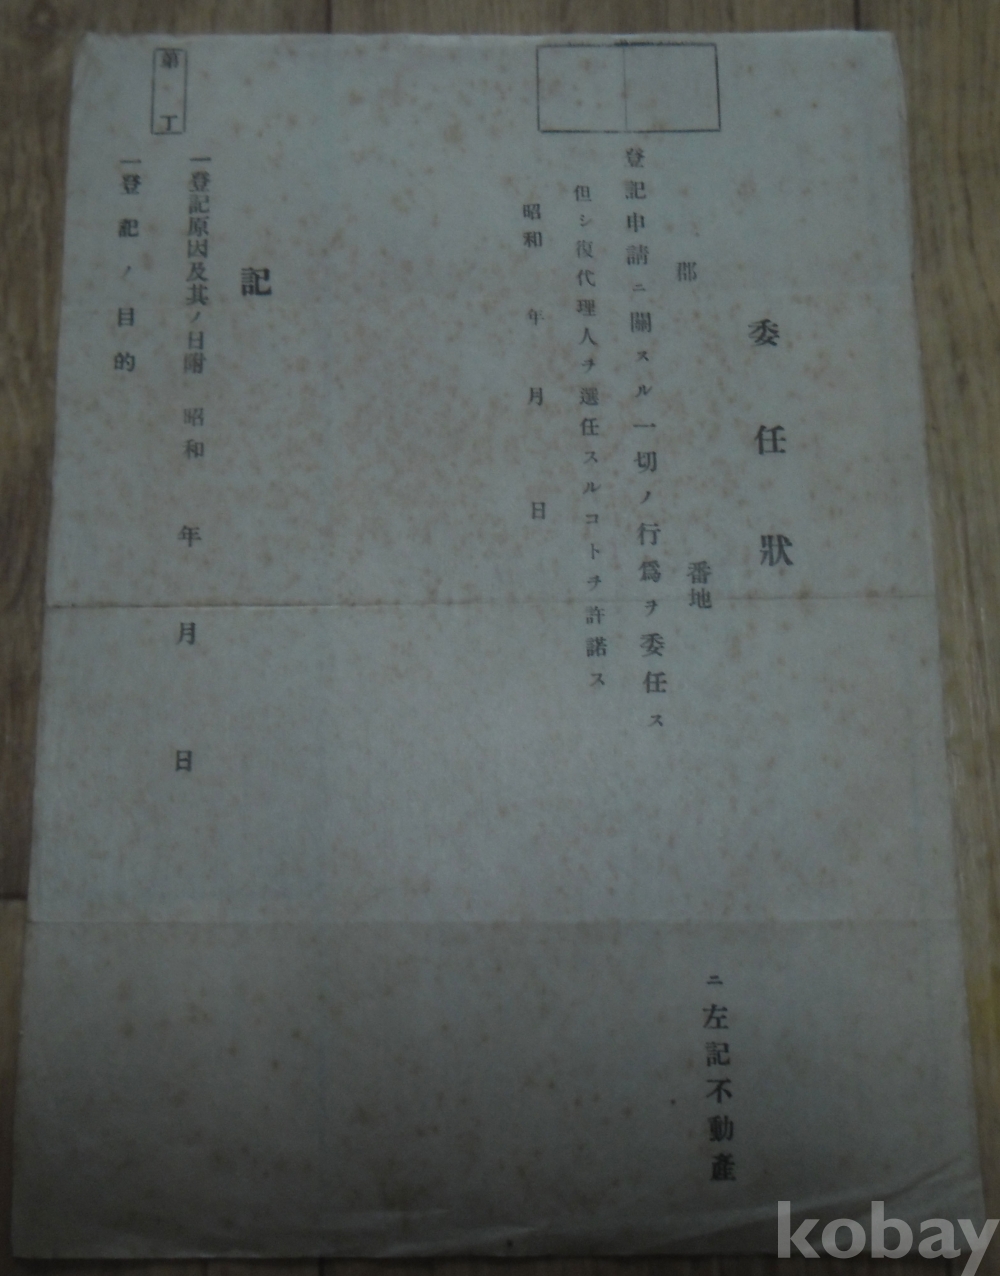 委任狀
郡 番地 ニ左記不動產
登記申請ニ關スル一切ノ行爲ヲ委任ス
但シ復代理人ヲ選任スルコトヲ許諾ス
昭和 年 月 日
記
一登記原因及其ノ日附 昭和 年 月 日
一登記ノ目的
第 工
kobay